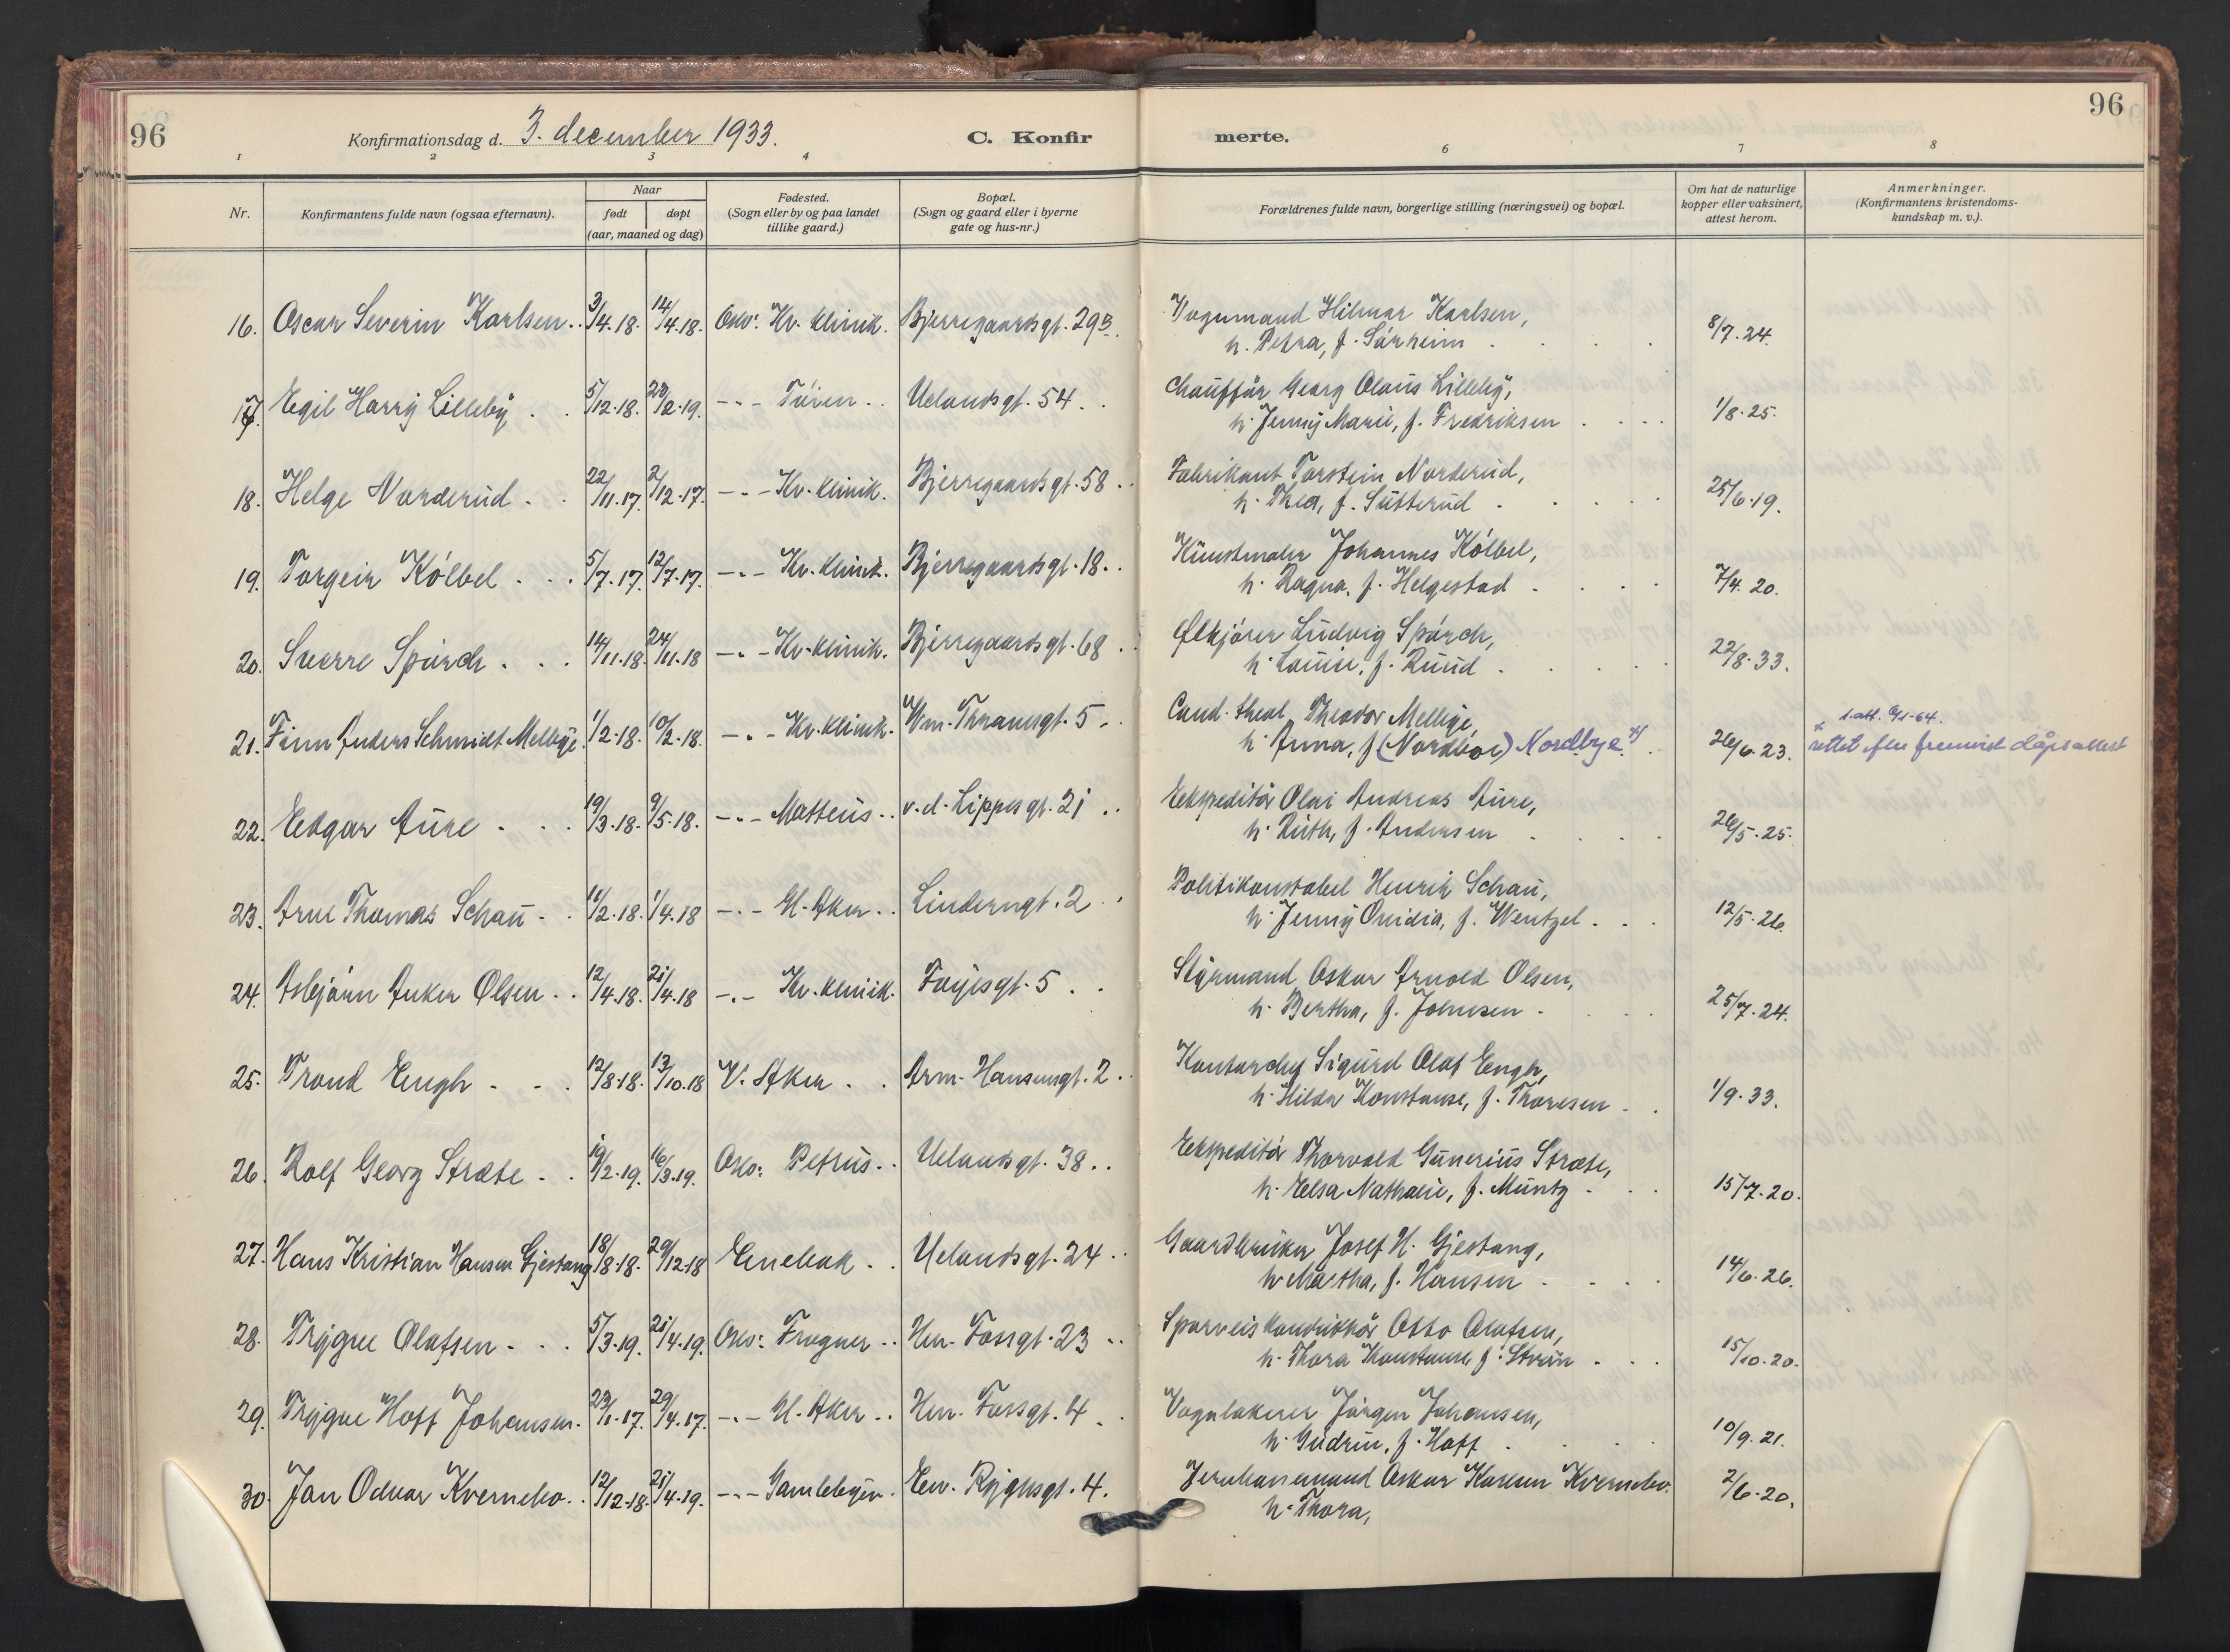 96
Konfirmationsdag d. 3. december 1933.
C. Konfirmerte.
96
1 2 3 4 6 7 8
Nr.
Konfirmantens fulde navn (ogsaa efternavn).
Naar
født
døpt
(aar, maaned og dag)
Fødested.
(Sogn eller by og paa landet
tillike gaard.)
Bopæl.
(Sogn og gaard eller i byerne
gate og hus-nr.)
Forældrenes fulde navn, borgerlige stilling (næringsvei) og bopæl.
Om hat de naturlige
kopper eller vaksinert,
attest herom.
Anmerkninger.
(Konfirmantens kristendoms-
kundskap m. v.).
16. Oscar Severin Karlsen. 3/4.18. 14/4.18. Kv. klinik. Bjerregaardsgt. 29B. Vognmand Hilmar Karlsen, 8/7.24.
h. Petra, f. Sørheim
17. Egil Harry Lilleby 5/12.18. 23/2.19. -"- Tøien Uelandsgt. 54 Chauffør Georg Olaus Lilleby, 1/8.25.
h. Jenny Marie, f. Fredriksen
18. Helge Norderud 22/11.17. 2/12.17. -"- Kv. klinik. Bjerregaardsgt. 58 Fabrikant Torstein Norderud, 25/6.19.
h. Thea, f. Sutterud
19. Torgeir Kölbel 5/7.17. 12/7.17. -"- Kv. klinik. Bjerregaardsgt. 18. Kunstmaler Johannes Kölbel, 7/4.20.
h. Ragna, f. Helgestad
20. Sverre Spørch 14/11.18. 24/11.18 -"- Kv. klinik. Bjerregaardsgt. 68 Ølkjører Ludvig Spørch, 22/8.33.
h. Louise, f. Ruud
21. Finn Anders Schmidt Mellbye 1/2.18. 10/2.18. -"- Kv. klinik. Wm. Thranesgt. 5 Cand. theol. Theodor Mellbye, 26/6.23.
h. Anna, f. (Nordboe) Nordbye x)
x rettet efter fremvist dåpsattest
22. Edgar Aure 19/3.18. 9/5.18. -"- Matteus v.d. Lippesgt. 21 Ekspeditør Olai Andreas Aure, 26/5.25.
h. Ruth, f. Andersen
23. Arne Thomas Schau 11/2.18. 1/4.18 -"- V. Aker Linderngt. 2 Politikonstabel Henrik Schau, 12/5.26.
h. Jenny Ovidia, f. Wentzel
24. Asbjørn Anker Olsen 12/4.18. 21/4.18 -"- Kv. klinik. Foyesgt. 5 Styrmand Oskar Arnold Olsen, 25/7.24.
h. Bertha, f. Johnsen
25. Trond Engh 12/8.18. 13/10.18 V. Aker Arm. Hansensgt. 2 Kontorchef Sigurd Olaf Engh, 1/9.33.
h. Hilda Konstanse, f. Thoresen
26. Rolf Georg Stræte 19/2.19. 16/3.19. Oslo: Petrus Uelandsgt. 38 Ekspeditør Thorvald Gunerius Stræte, 15/7.20.
h. Elsa Nathalie, f. Müntz
27. Hans Kristian Hansen Gjestang 18/8.18. 29/12.18 Enebak Uelandsgt. 24 Gaardbruker Josef H. Gjestang, 14/6.26.
h. Martha, f. Hansen
28. Trygve Olafsen 5/3.19. 21/4.19. Oslo: Frogner Hen. Fossgt. 23 Sporveiskonduktør Otto Olafsen, 15/10.20.
h. Thora Konstanse, f. Strøm
29. Trygve Hoff Johansen. 23/1.17. 29/4.17. -"- V. Aker Hen. Fossgt. 4 Vognlakerer Jørgen Johansen, 10/9.21.
h. Gudrun, f. Hoff
30. Jan Odvar Kvernebo 12/12.18. 21/4.19. -"- Gamlebyen Ew. Ryghsgt. 4. Jernbanemand Oskar Karlsen Kvernebo. 2/6.20.
h. Thora,